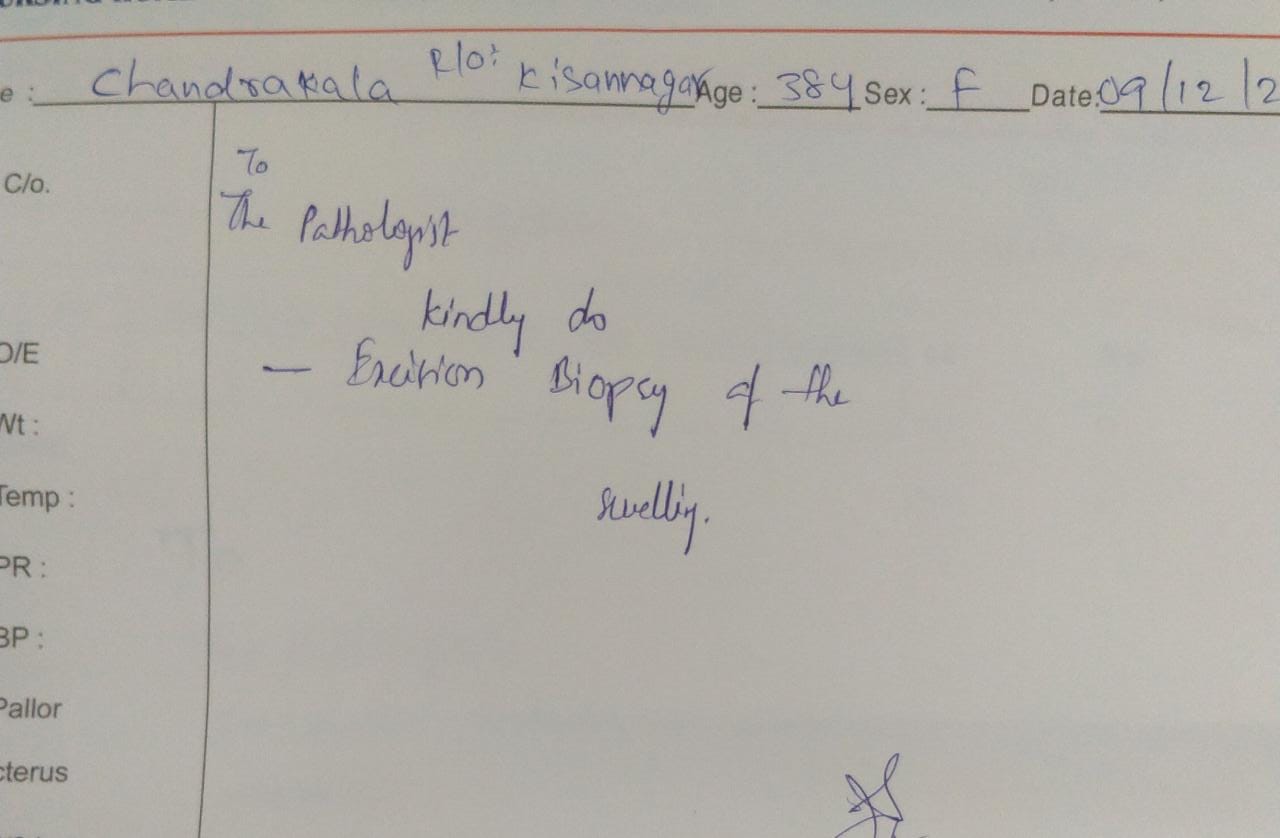 e : Chandrakala R/o: Kisannagar Age : 38Y Sex : F Date: 09/12/2
To
C/o.
The Pathologist
kindly do
O/E
— Excision Biopsy of the
Wt :
Temp :
swelling.
PR :
BP :
Pallor
cterus